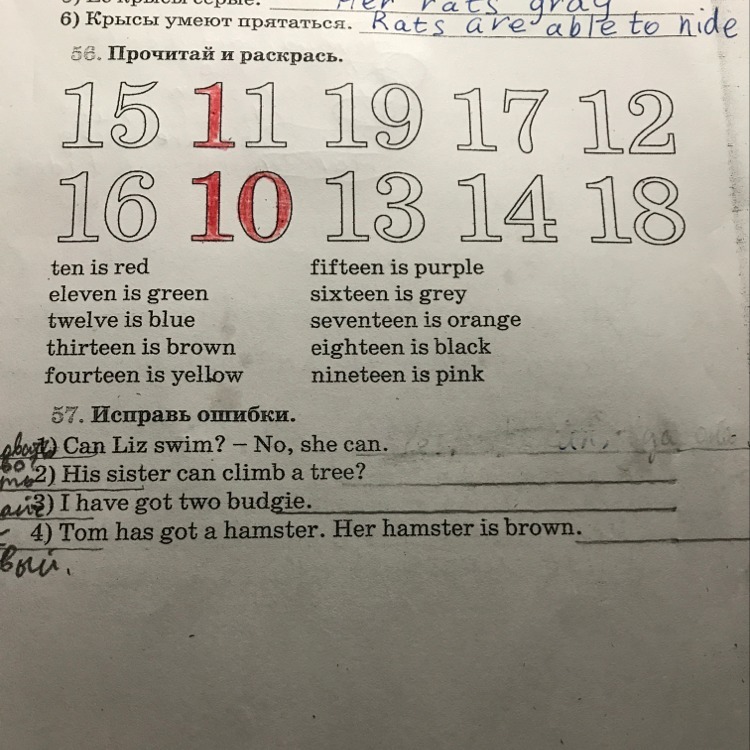 5) Её крысы серые. Her rats gray
6) Крысы умеют прятаться. Rats are able to hide
56. Прочитай и раскрась.
15 11 19 17 12
16 10 13 14 18
ten is red fifteen is purple
eleven is green sixteen is grey
twelve is blue seventeen is orange
thirteen is brown eighteen is black
fourteen is yellow nineteen is pink
57. Исправь ошибки.
1) Can Liz swim? – No, she can.
2) His sister can climb a tree?
3) I have got two budgie.
4) Tom has got a hamster. Her hamster is brown.
вый.